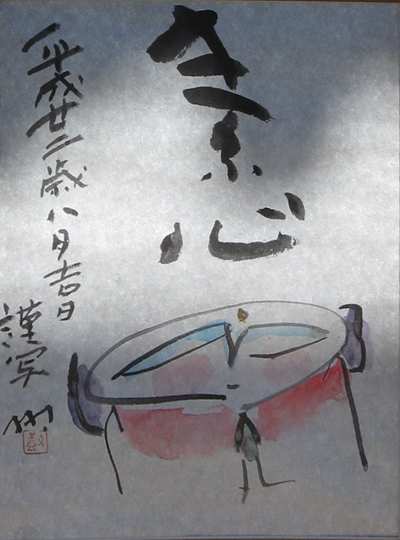 素心
平成廿二歳八月吉日
謹写